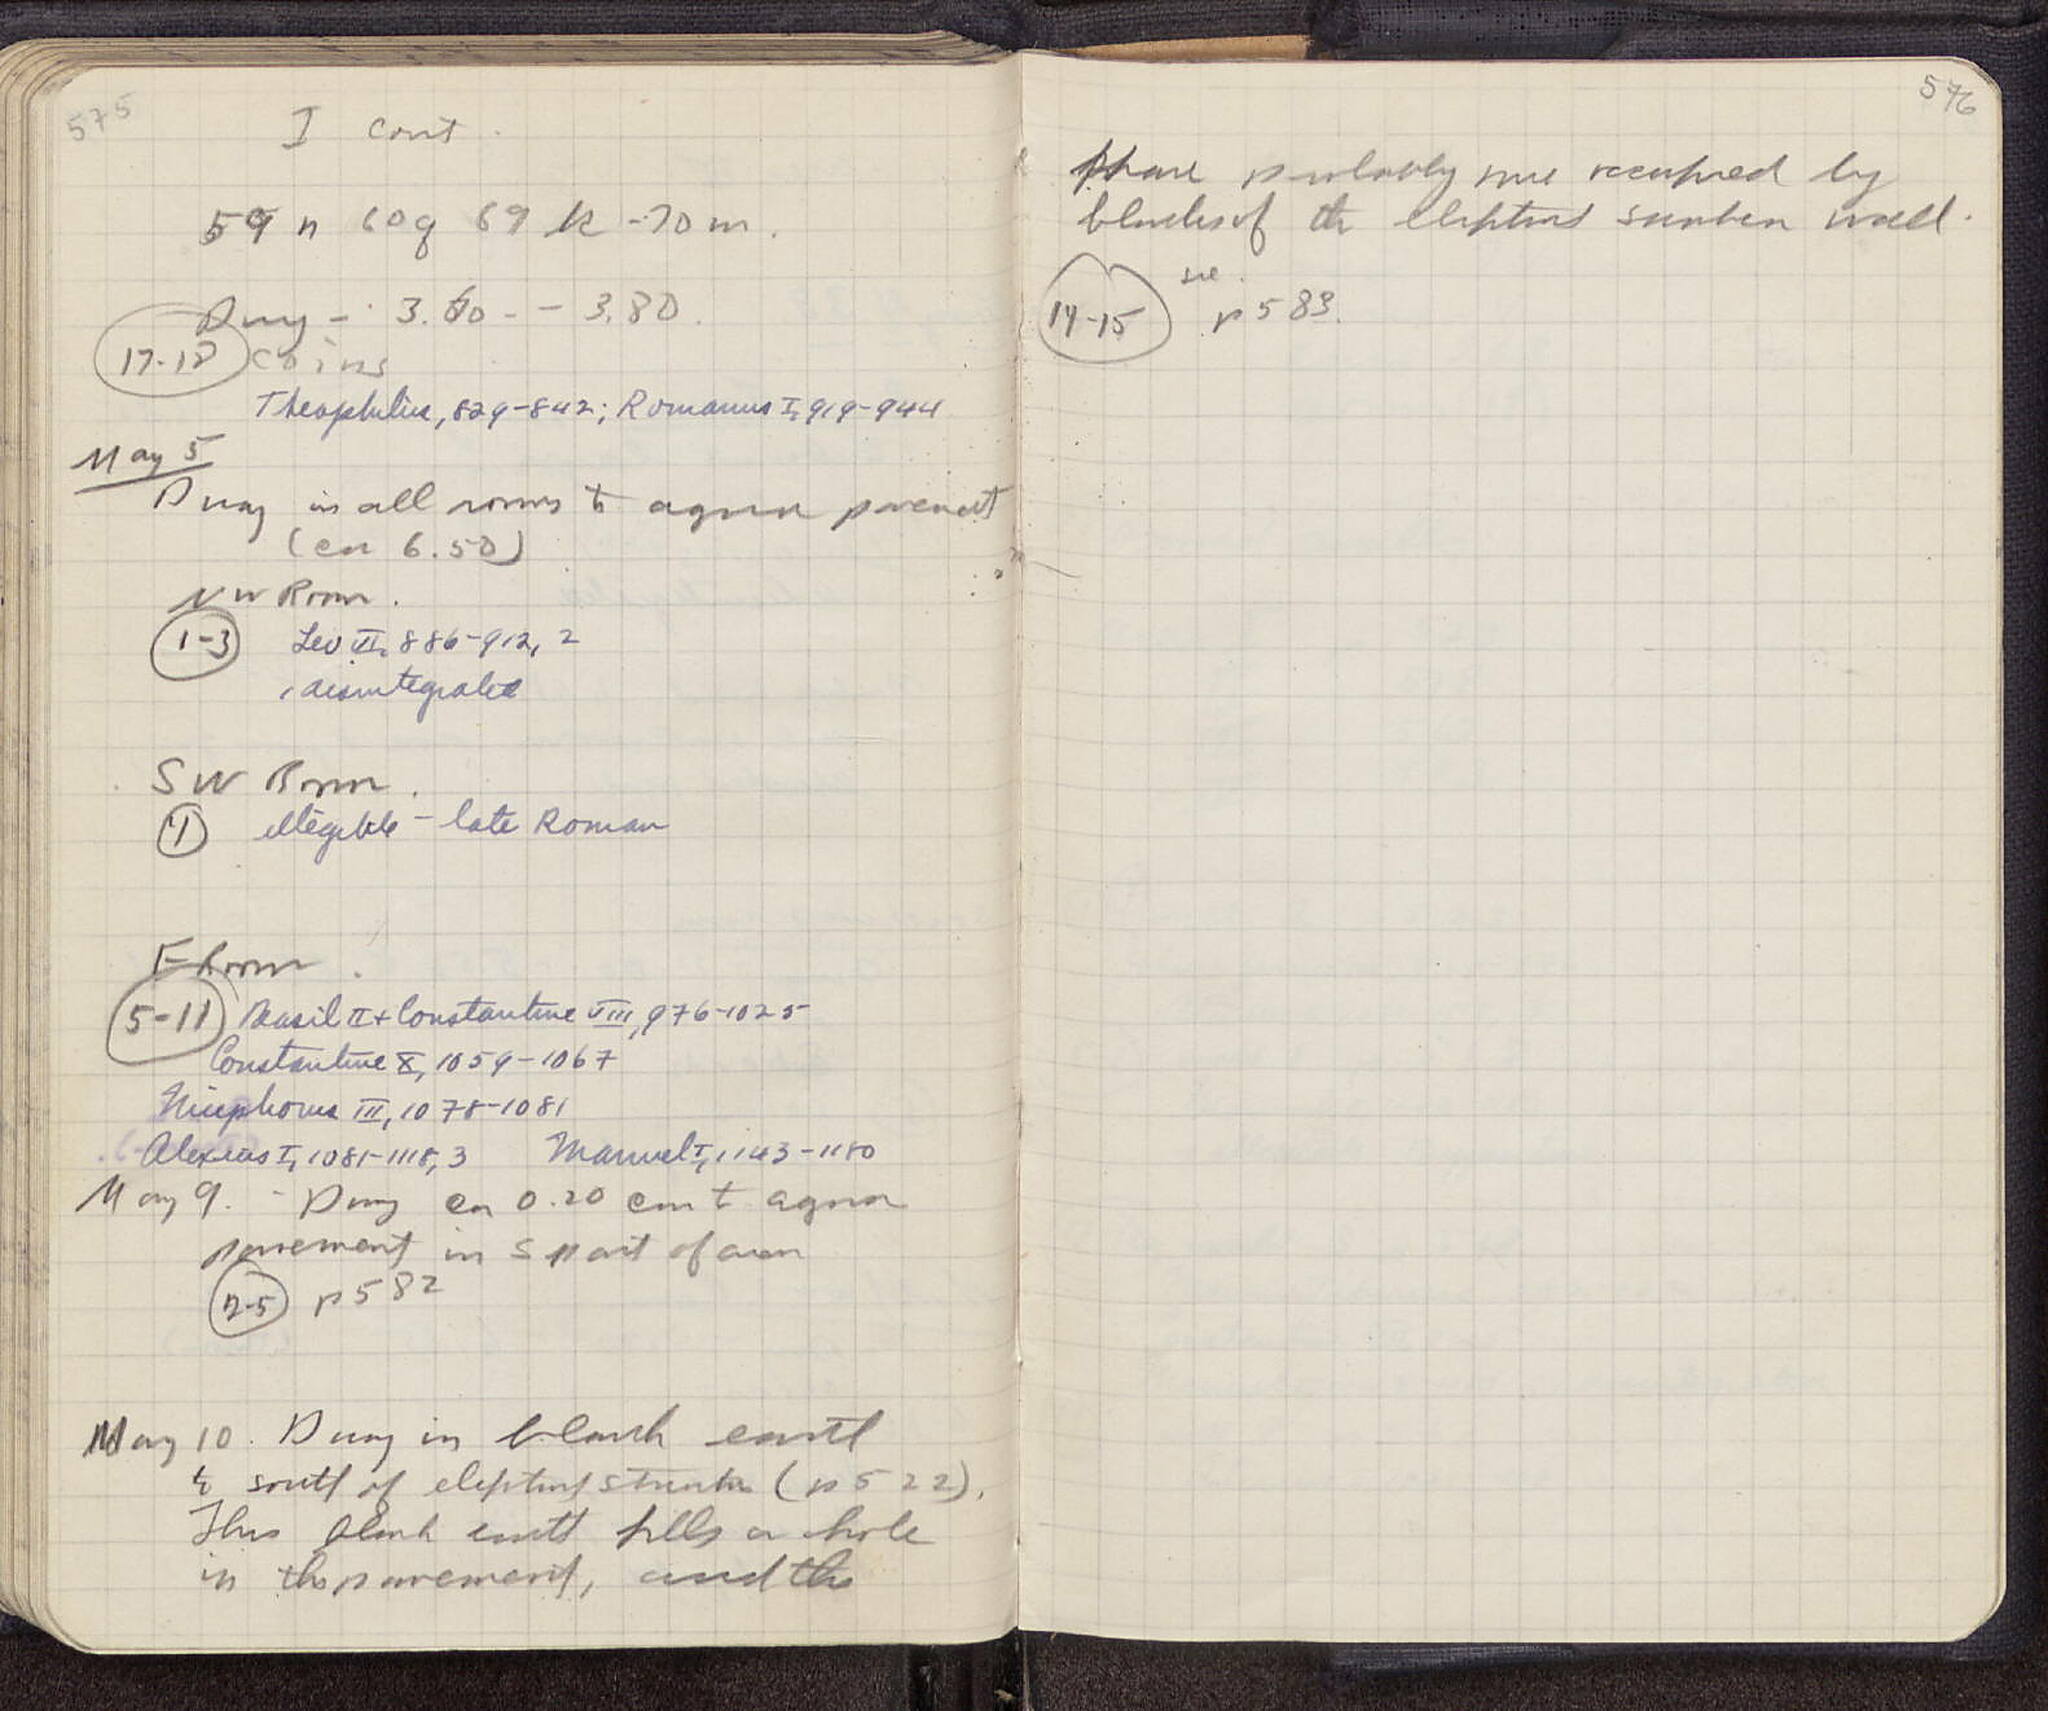 575
I cont.
59 n 60 q 69 k - 70 m.
Dug - 3.60 - - 3.80.
17-18 coins
Theophilus, 829-842; Romanus I, 919-944
May 5
Dug in all rooms to agora pavemt
(ca 6.50)
NW Room.
1-3 Leo VI, 886-912, 2
1 disintegrated
SW Room.
4 illegible - late Roman
E Room.
5-11 Basil II + Constantine VIII, 976-1025
Constantine X, 1059-1067
Nicephorus III, 1078-1081
Alexius I, 1081-1118, 3 Manuel I, 1143-1180
May 9. - Dug ca 0.20 cm to agora
pavement in S part of area
2-5 p 582
May 10. Dug in black earth
to south of eliptical (p 522).
This black earth fills a hole
in the pavement, and the
576
place probably once occupied by
blocks of the sunken wall.
14-15 see p 583.